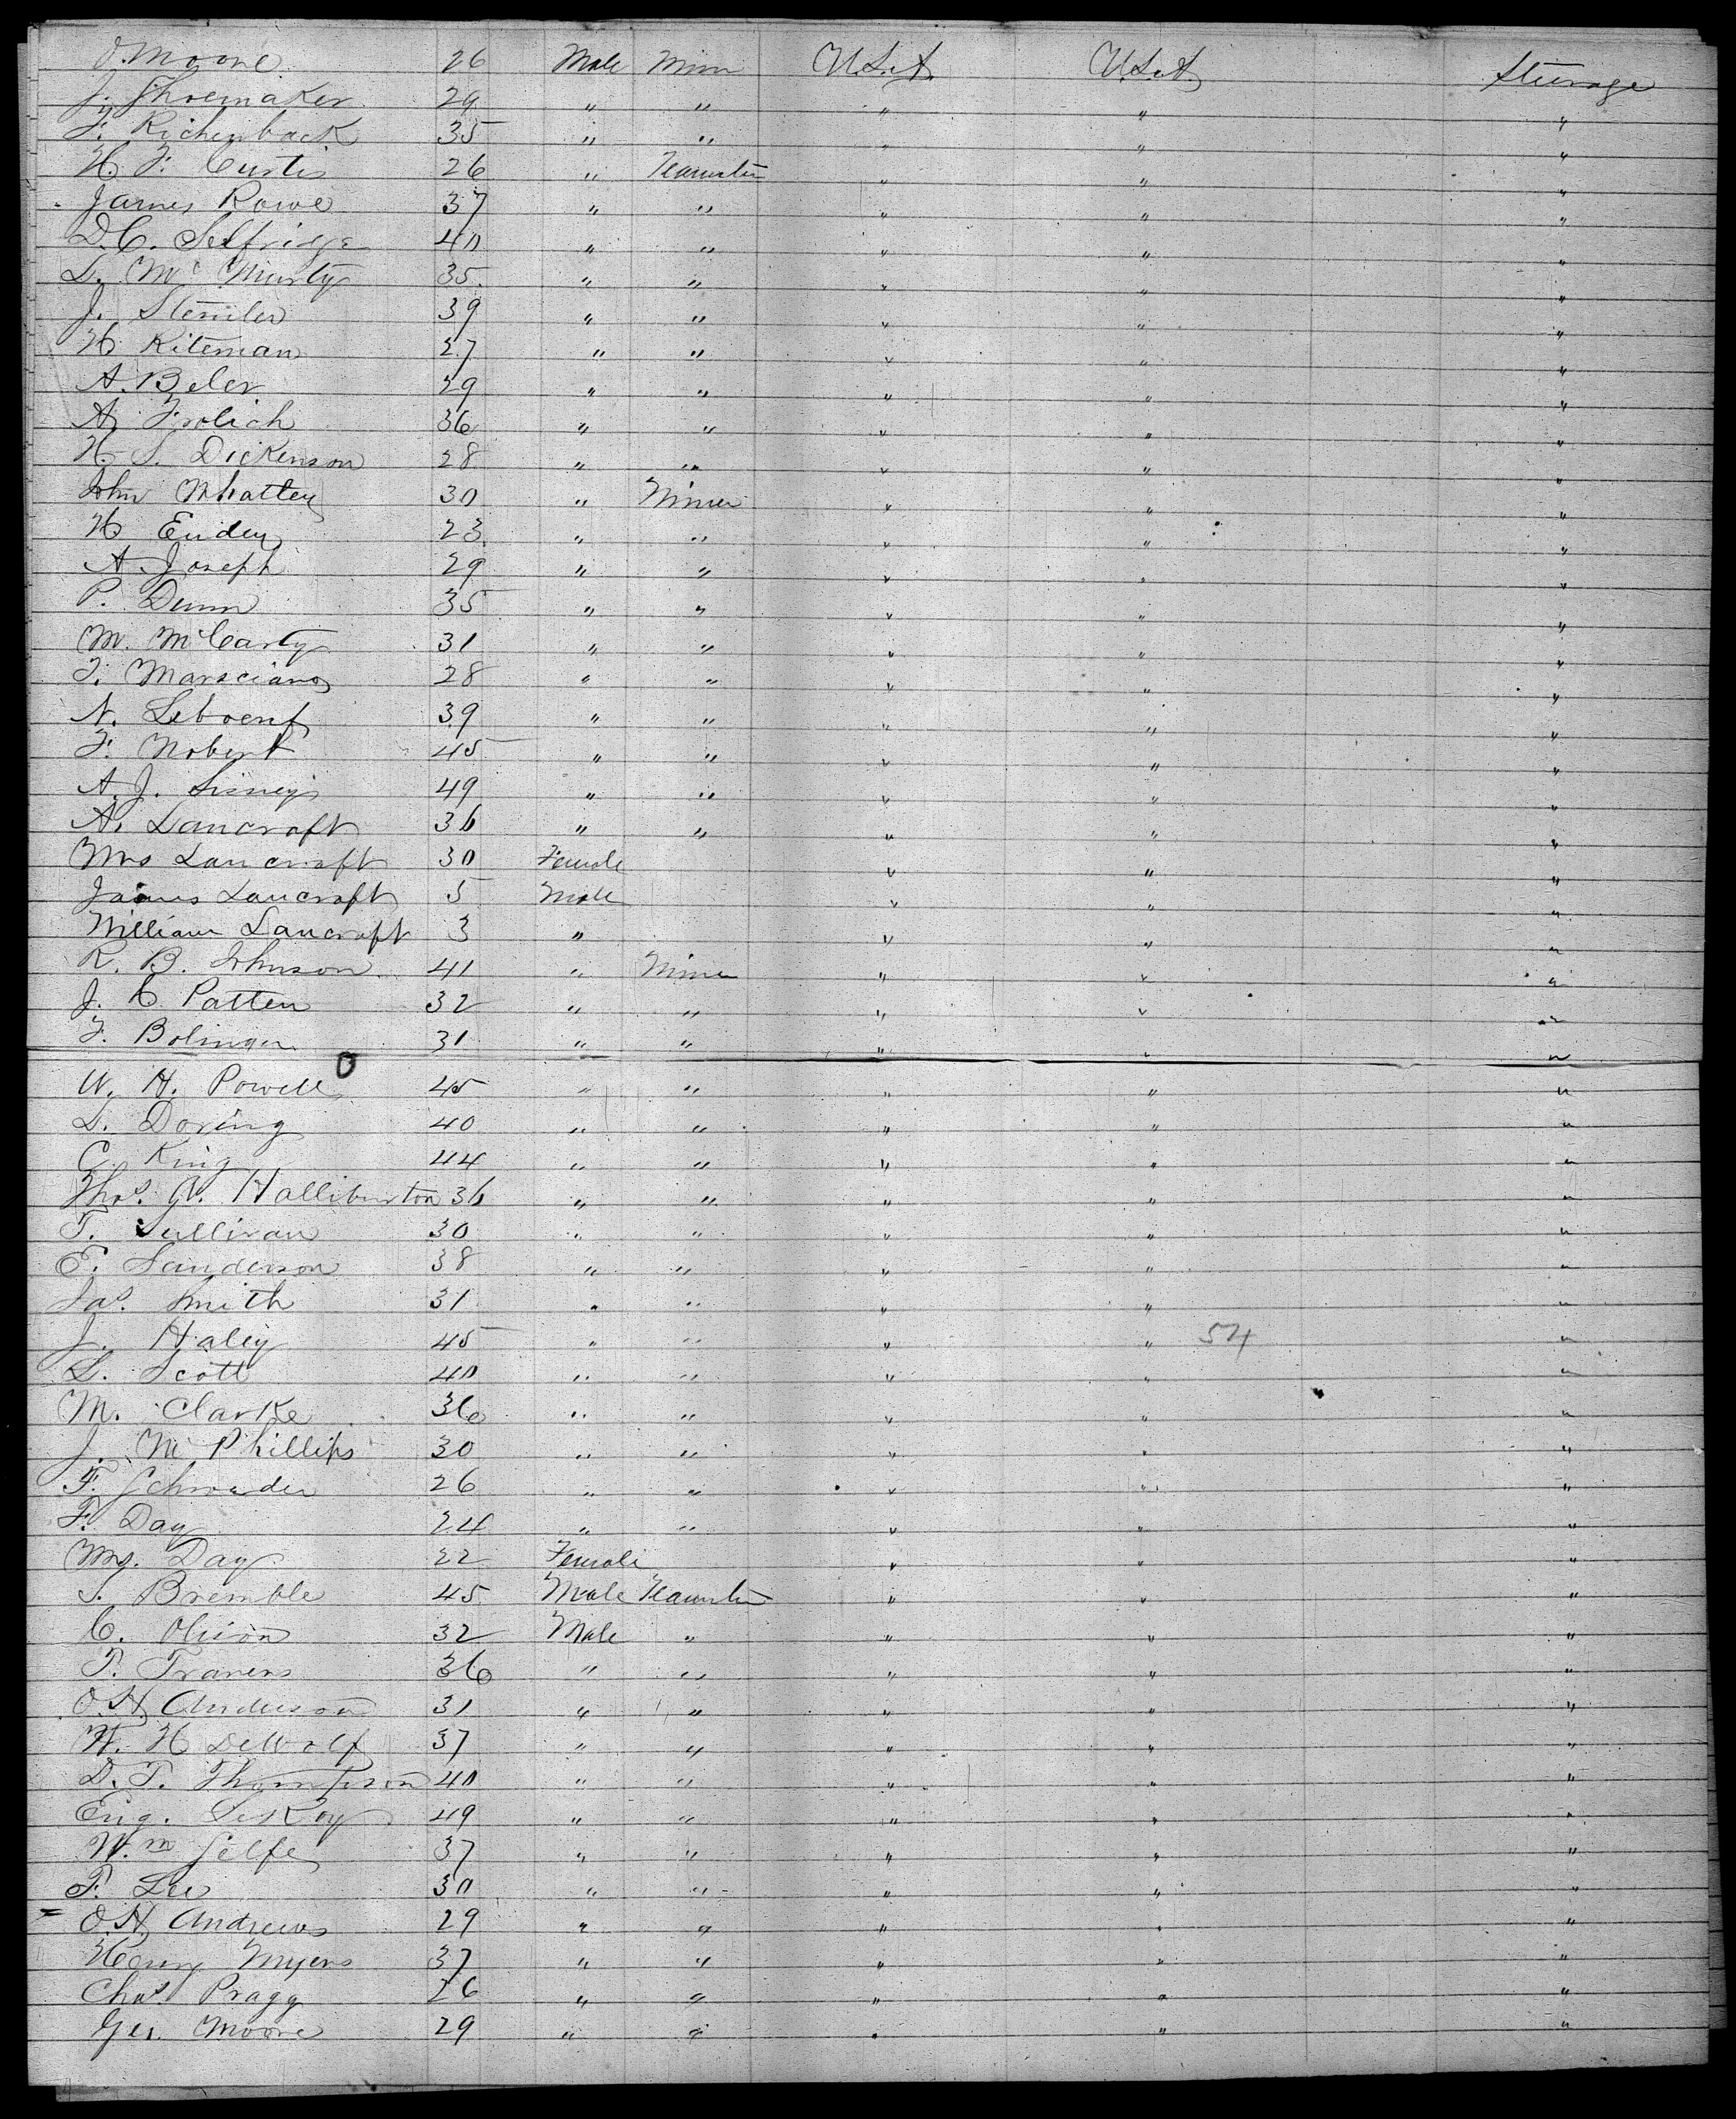 O. Moore 26 Male Miner U.S.A. U.S.A. Steerage
J. Shoemaker 29 " " " " "
F. Richenback 35 " " " " "
H. F. Curtis 26 " Teamster " " "
James Rowe 37 " " " " "
D. C. Selfridge 40 " " " " "
L. Mc Murty 35 " " " " "
J. 39 " " " " "
H Kiteman 27 " " " " "
A. Beler 29 " " " " "
A. Frolich 36 " " " " "
H. S. Dickenson 28 " " " " "
John Whatley 30 " Miner " " "
H 23 " " " " "
A. Joseph 29 " " " " "
P. Dunn 35 " " " " "
M. McCarty 31 " " " " "
F. Marsciano 28 " " " " "
N. Leboeuf 39 " " " " "
F. Nobert 45 " " " " "
A. J. 49 " " " " "
A. Lancraft 36 " " " " "
Mrs Lancraft 30 Female " " "
James Lancraft 5 Male " " "
William Lancraft 3 " " " "
R. B. Johnson 41 " Miner " " "
J. C Patten 32 " " " " "
F. Bolinger 31 " " " " "
W. H. Powell 45 " " " " "
L. Doring 40 " " " " "
C. King 44 " " " " "
Thos. W. Halliburton 36 " " " " "
T. Sullivan 30 " " " " "
E. Sanderson 38 " " " " "
Jas. Smith 31 " " " " "
J. Haley 45 " " " " 54 "
L. Scott 40 " " " " "
M. Clarke 36 " " " " "
J. M Phillips 30 " " " " "
F. Schroeder 26 " " " " "
F. Day 24 " " " " "
Mrs. Day 22 Female " " "
S. Bremble 45 Male Teamster " " "
C. 32 Male " " " "
P. Travers 36 " " " " "
O. H. Anderson 31 " " " " "
W. H DeWolf 37 " " " " "
D. T. Thompson 40 " " " " "
Eug. LeRoy 49 " " " " "
Wm 37 " " " " "
F. Lee 30 " " " " "
O. H. Andrews 29 " " " " "
Henry Myers 37 " " " " "
Chas. Pragg 26 " " " " "
Geo. Moore 29 " " " " "